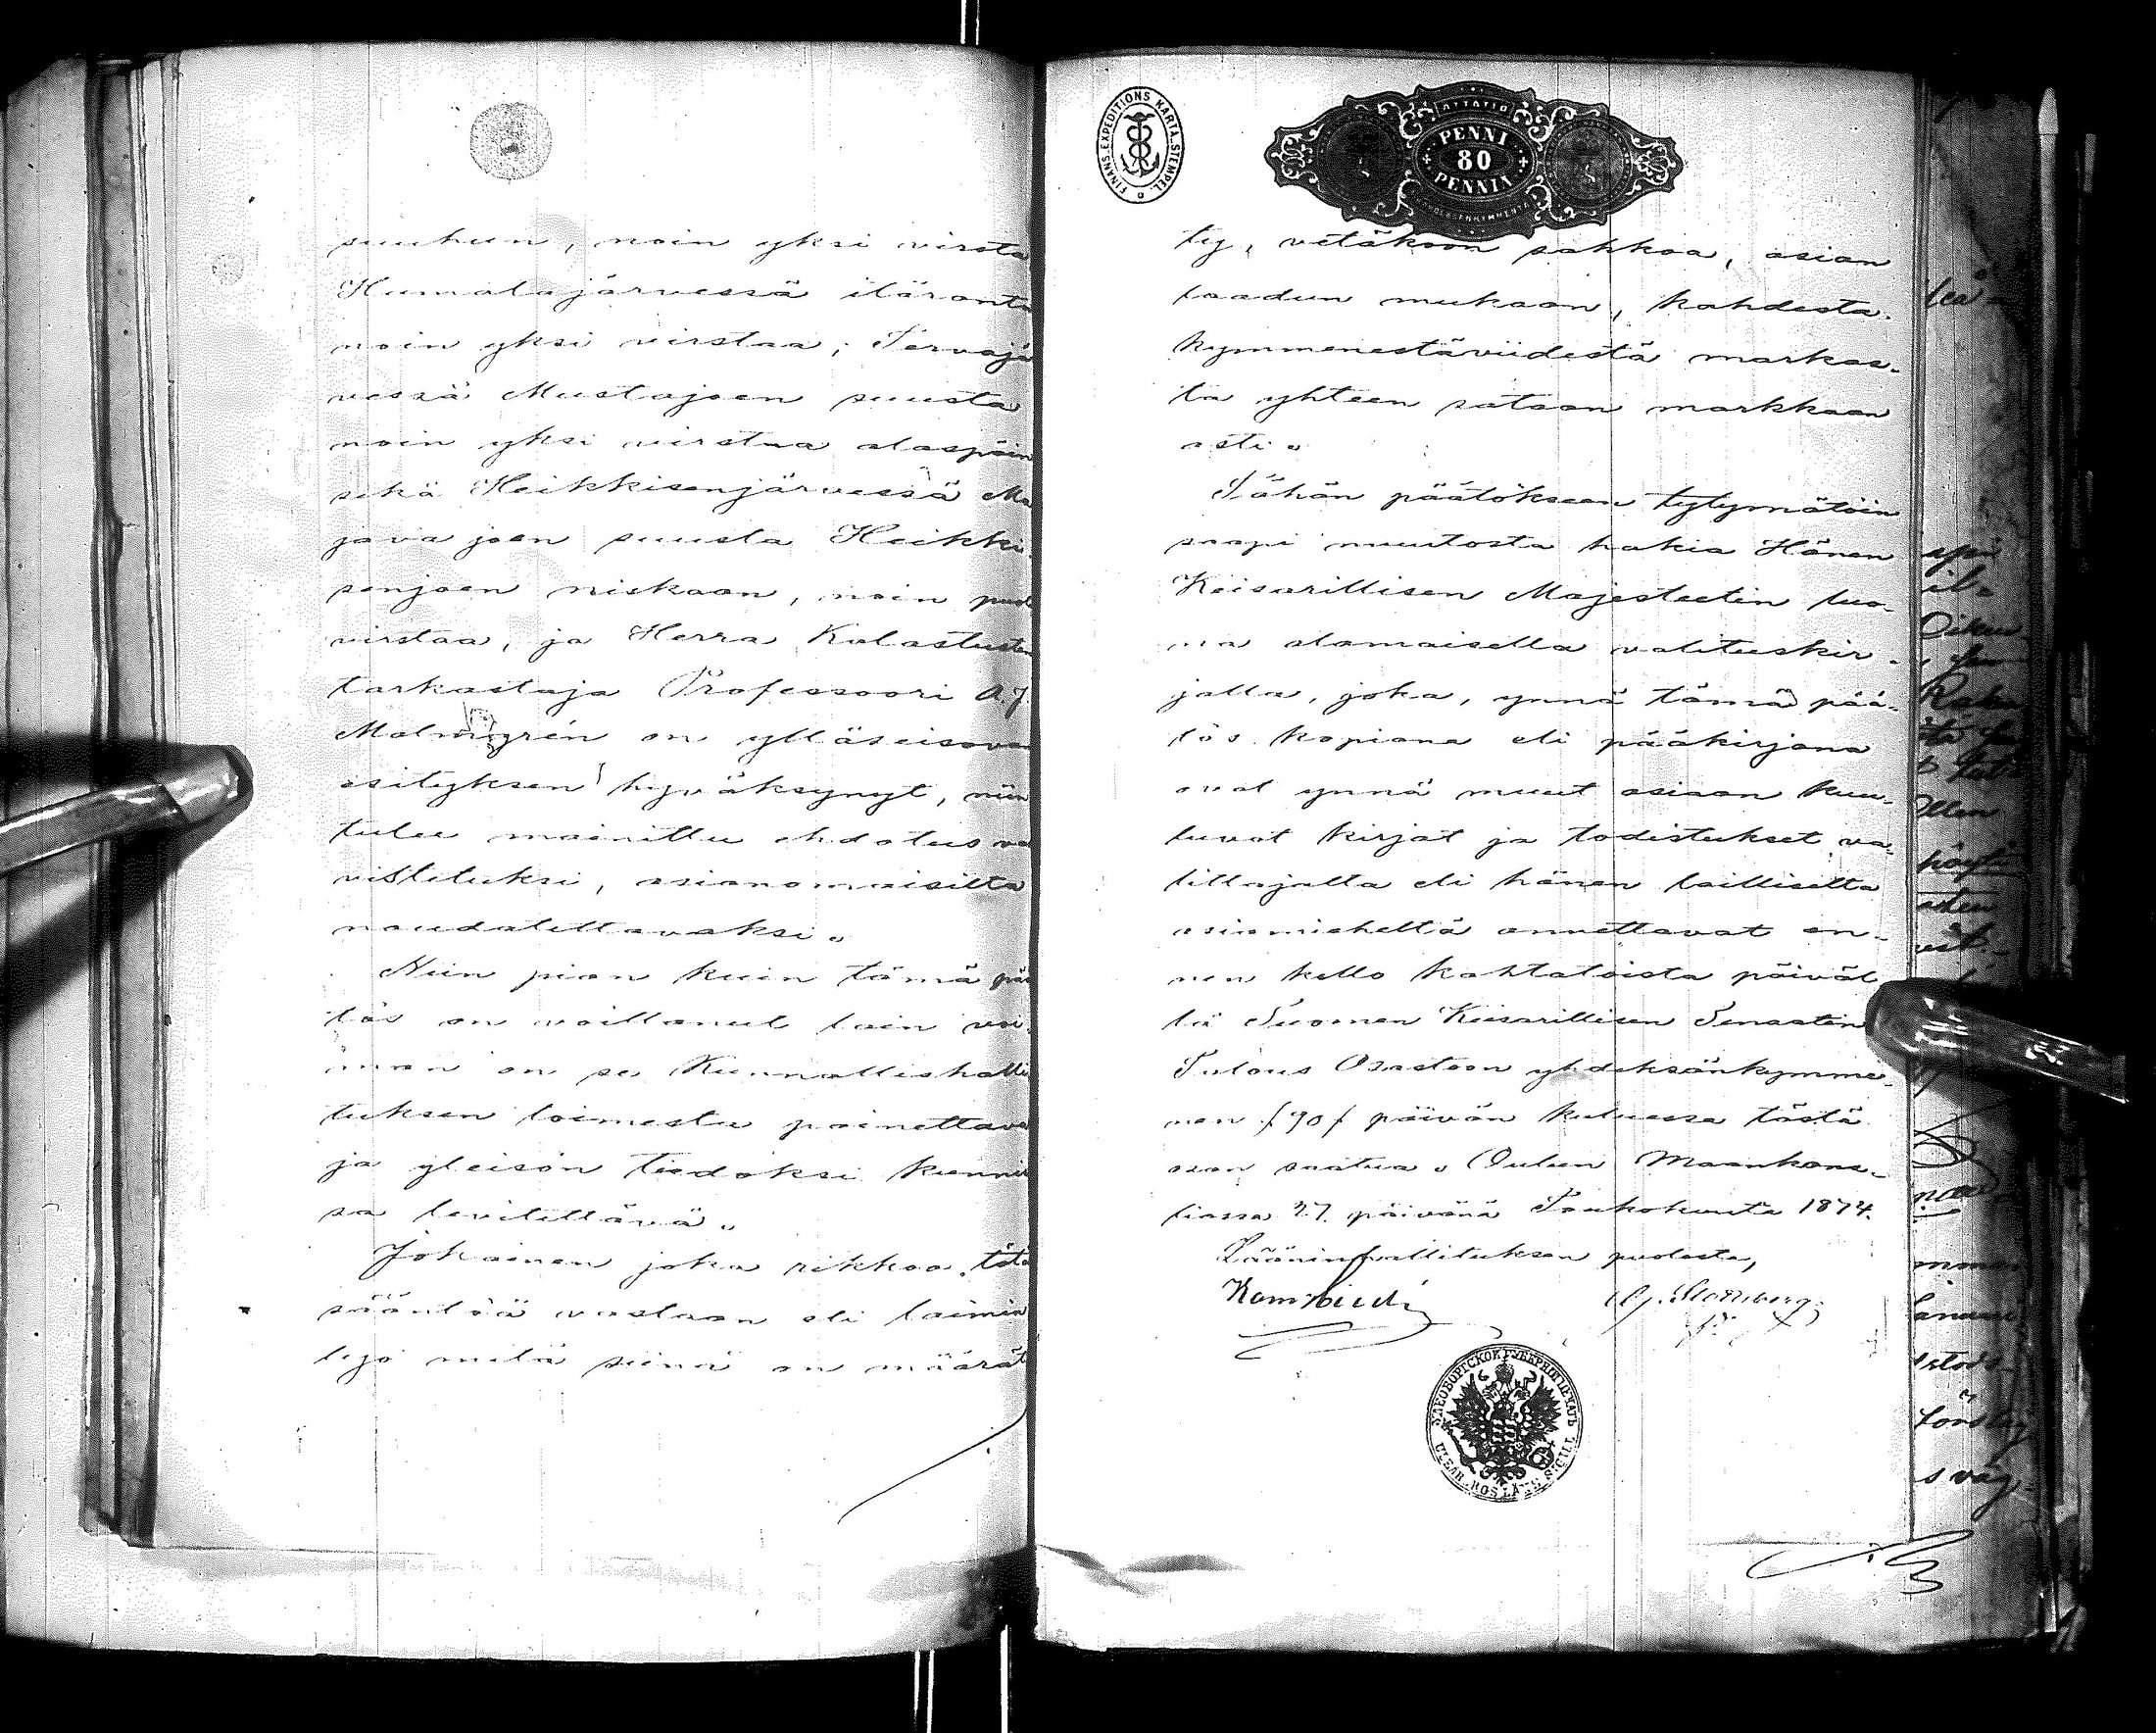 suuhun, noin yksi virsta
Humalajärvessä itäranta
noin yksi virstaa; Tervajä
vessä Mustajoen suusta
noin yksi virstaa alaspäin
sekä Heikkisenjärvessä Ma
java joen suusta Heikki
senjoen niskaan, noin puol
virstaa, ja Herra Kalastusten
tarkastaja Professoori A.J.
Malmgrén on ylläseisovan
esityksen hyväksynyt, niin
tulee mainittu ehdotus va
vistetuksi, asianomaisilta
noudatettavaksi.
Niin pian kuin tämä pää
tös on voittanut lain voi
man on se Kunnallishalli
tuksen toimesta painettava
ja yleisön tiedoksi kunnis
sa levitettävä.
Jokainen joka rikkoo tätä
sääntöä vastaan eli laimin
lyö mitä siinä on määrät
FINANS-EXPEDITIONS KARTA STEMPEL
ATTATIO
PENNI
80
PENNIN
ty, vetäköön sakkoa, asian
laadun mukaan, kahdesta-
kymmenestäviidestä markas-
ta yhteen sataan markkaan
asti.
Tähän päätökseen tytymätöin
saapi muutosta hakia Hänen
Keisarillisen Majesteetin luo-
na alamaisella valituskir-
jalla, joka, ynnä tämä pää-
tös kopiana eli pääkirjana
ovat ynnä muut asiaan kuu-
luvat kirjat ja todistukset va-
littajalta eli hänen lailliselta
asiamieheltä annettavat en-
nen kello kahtatoista päiväl
lä Suomen Keisarillisen Senaatin
Talous Osastoon yhdeksänkymme-
nen /90/ päivän kuluessa tästä
osan saatua. Oulun Maankans-
liassa 27 päivänä Toukokuuta 1874.
Lääninhallituksen puolesta,
УЛЕОБОРГСКОЙ ГУБЕРНІИ ПЕЧАТЬ
ULEÅBORGS LÄNS SIGILL